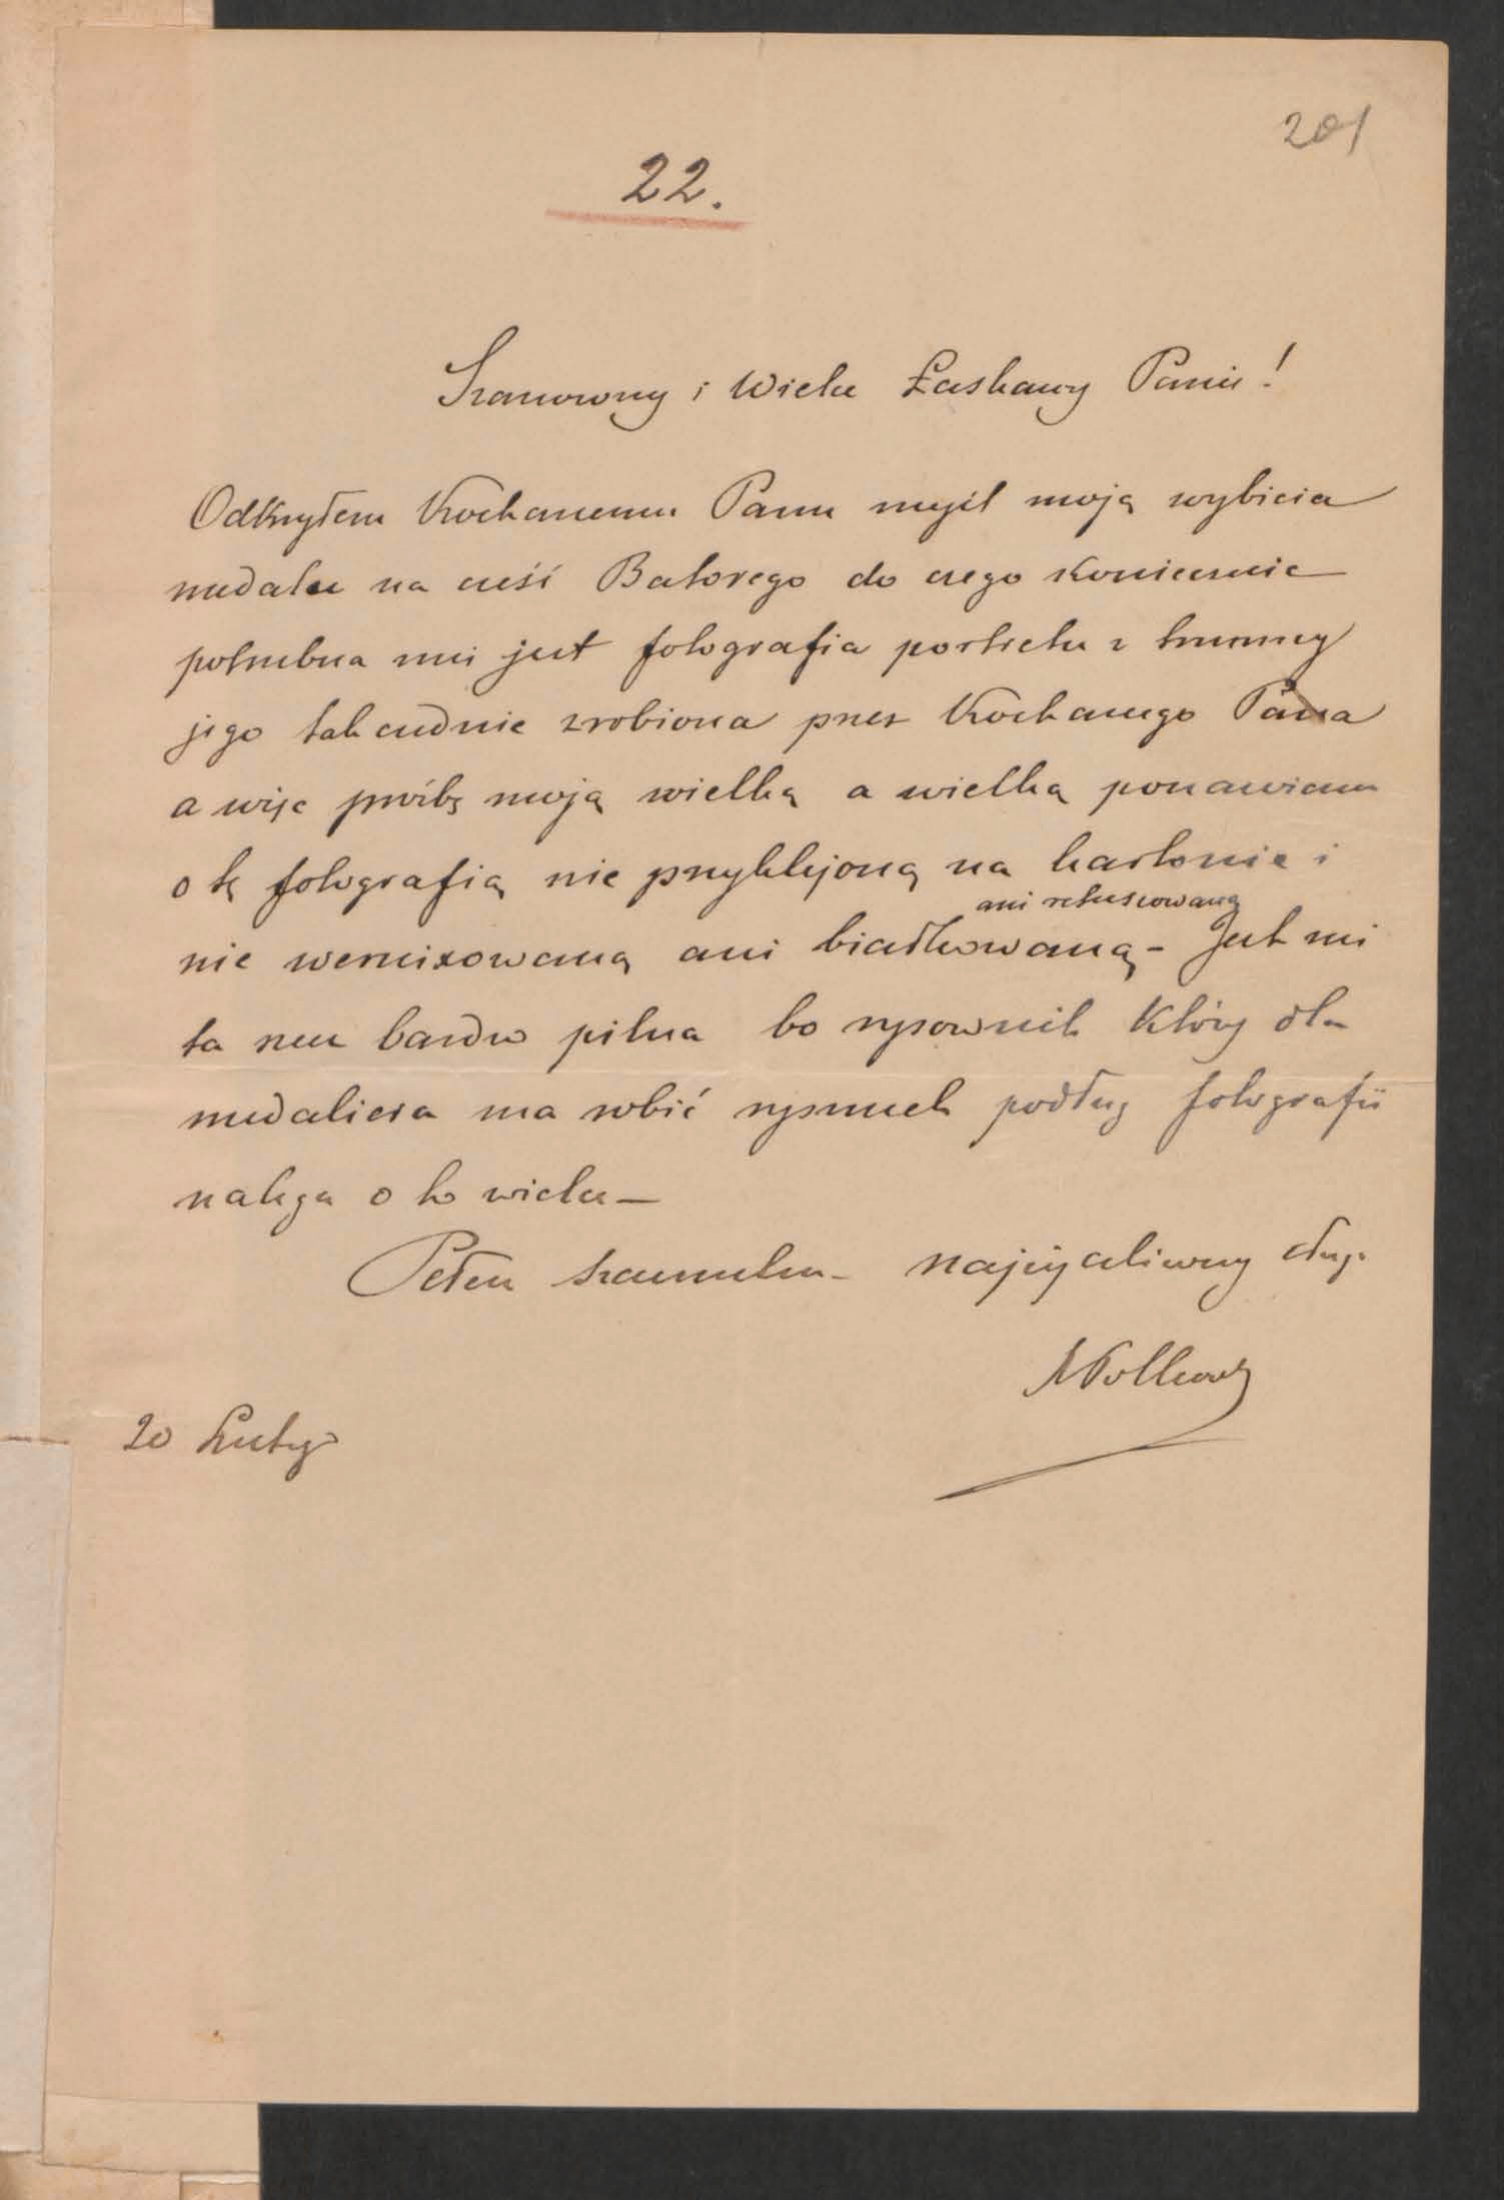 201
22.
Szanowny i Wielce Łaskawy Panie!
Odkryłem Kochanemu Panu myśl moją wybicia
medalu na cześć Batorego do czego koniecznie
potrzebna mi jest fotografia portretu z trumny
jego tak cudnie zrobiona przez Kochanego Pana
a więc prośbę moją wielką a wielką ponawiam
o tę fotografią nie przyklejoną na kartonie i
ani retuszowaną
nie wernixowaną ani białkowaną - Jest mi
ta rzecz bardzo pilna bo rysownik który dla
medaliera ma robić rysunek podług fotografii
nalega o to wielce -
Pełen szacunku - najżyczliwszy sług.
20 Luty